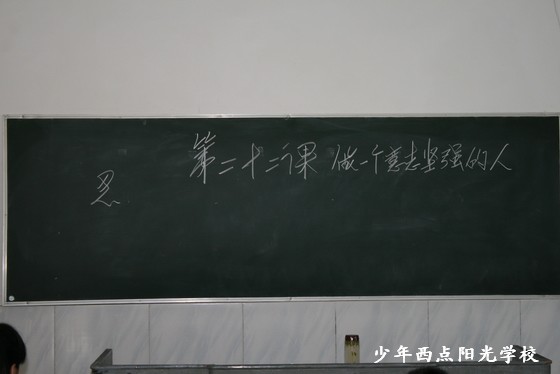 第二十二课 做一个意志坚强的人
忍
少年西点阳光学校